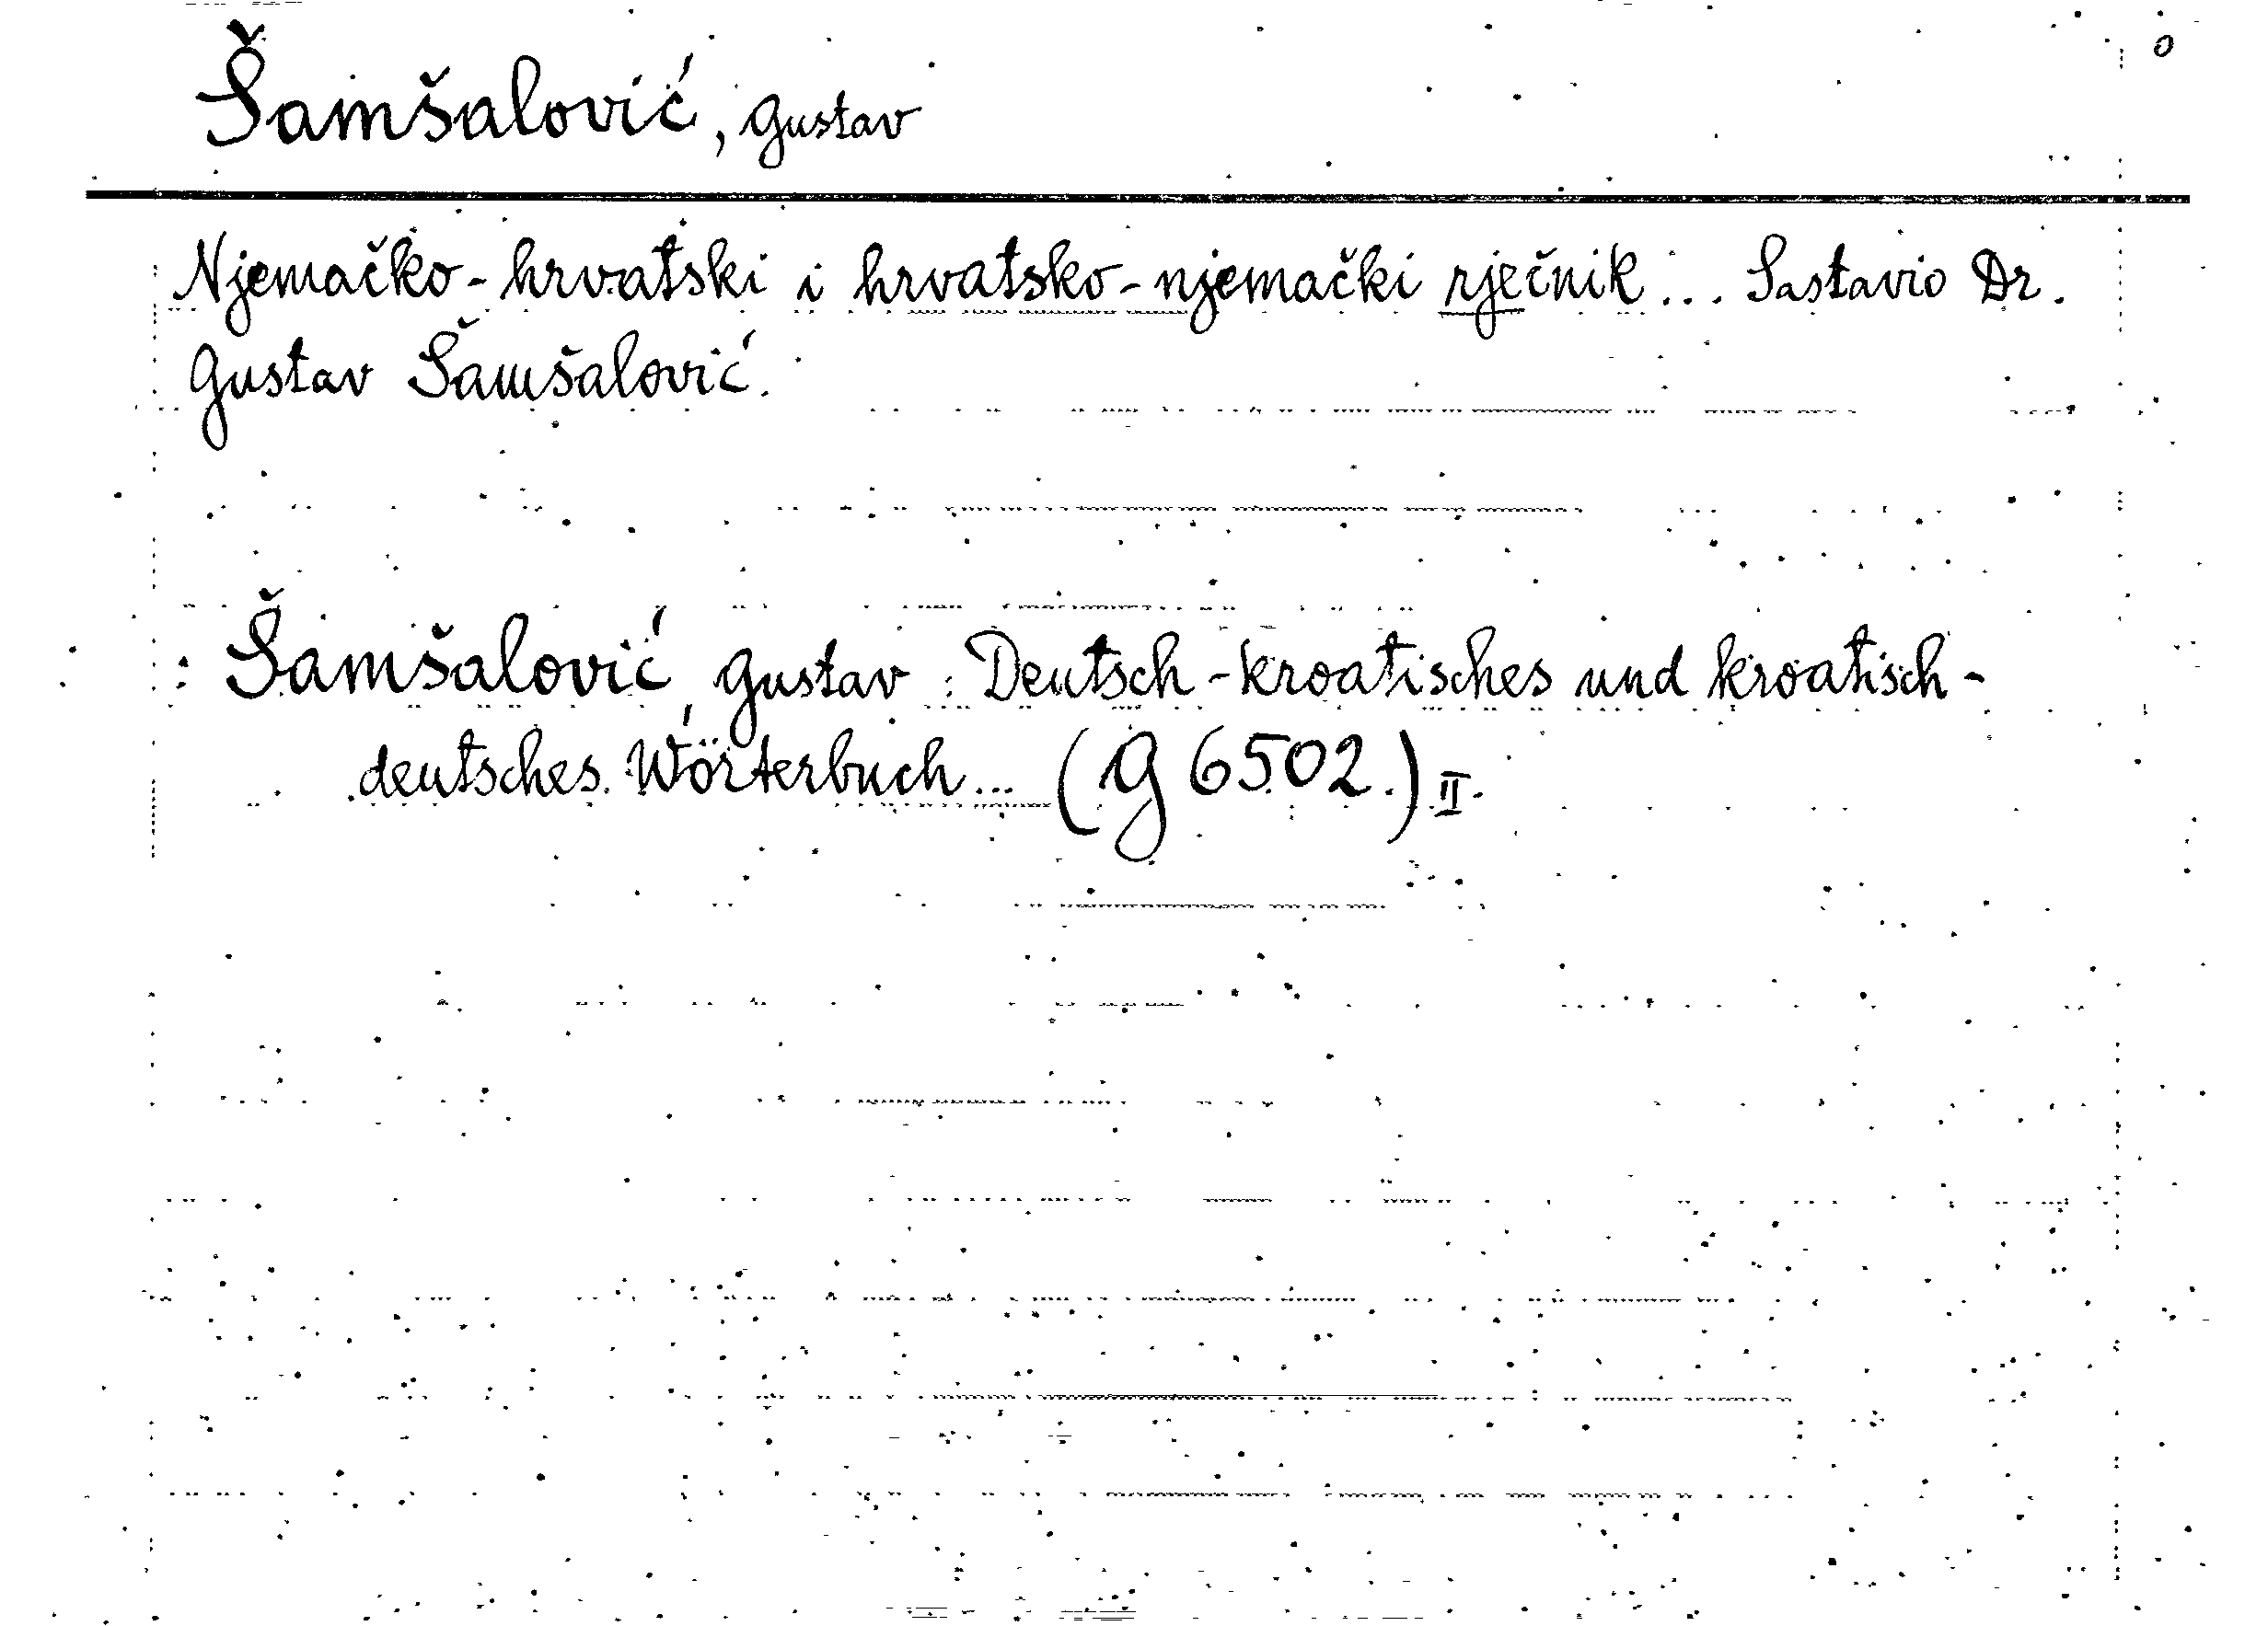 o
Šamšalović, Gustav
Njemačko-hrvatski i hrvatsko-njemački rječnik... Sastavio Dr.
Gustav Šamšalović.
Šamšalović, Gustav: Deutsch-kroatisches und kroatisch-
deutsches Wörterbuch... (G 6502.) II.